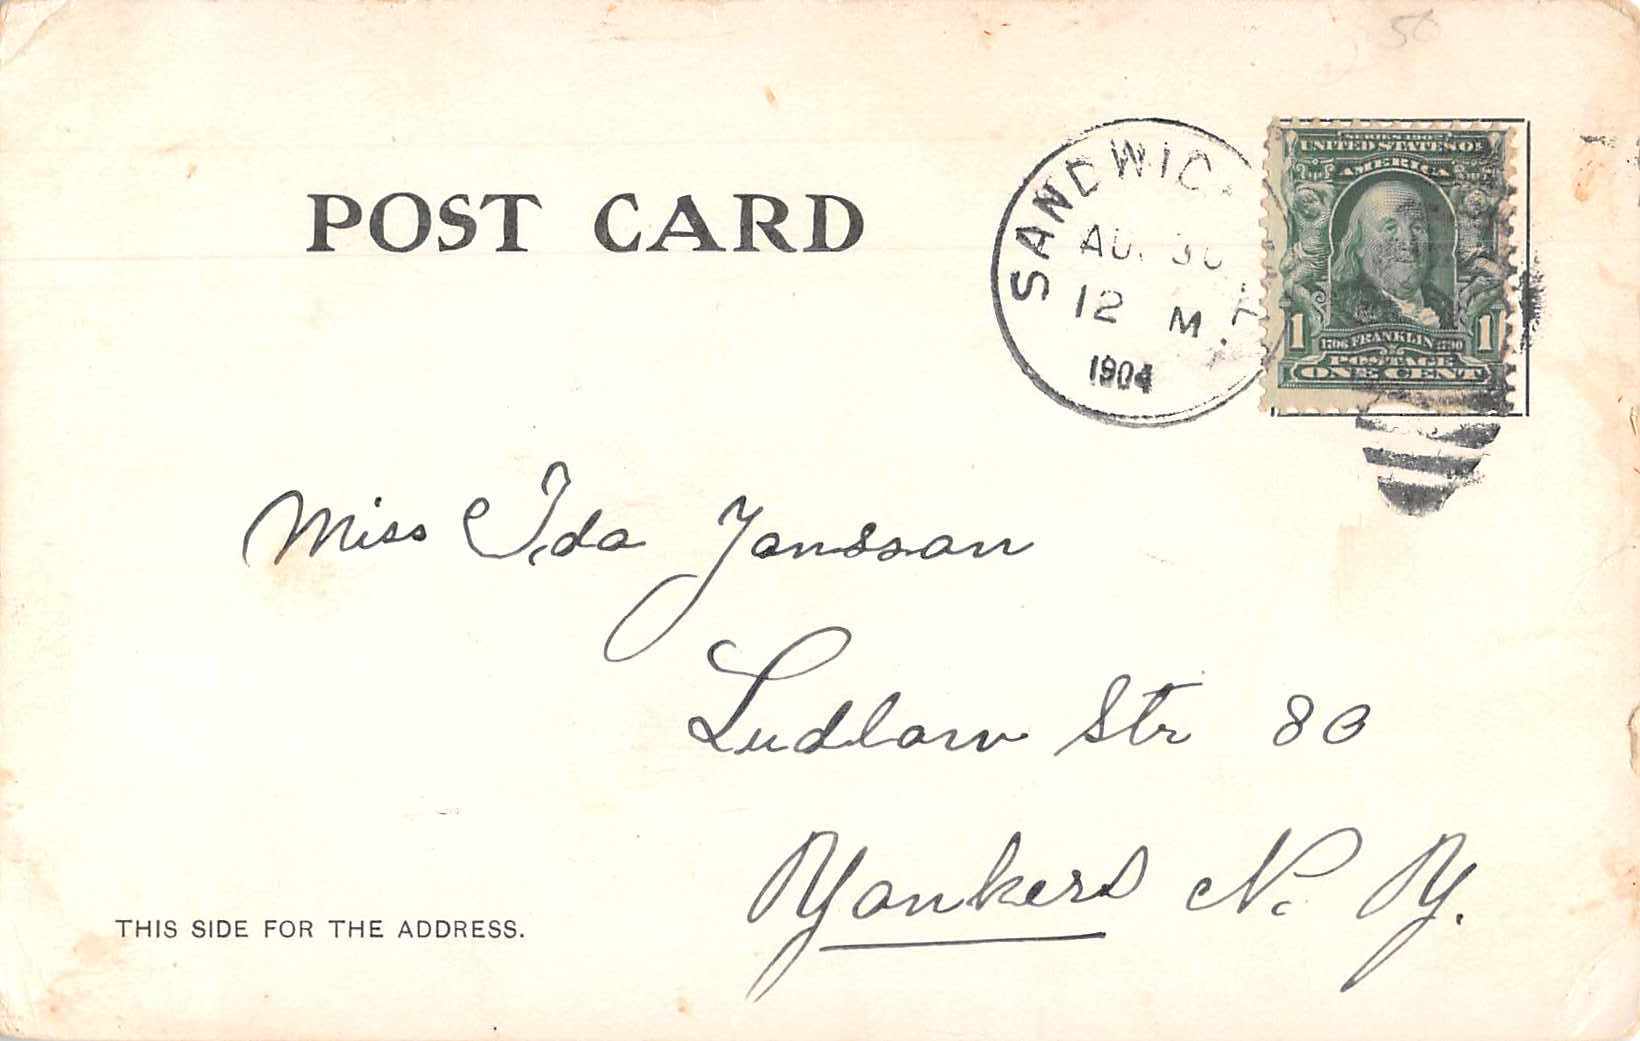 50
SANDWIC
AU. 30
12 M
1904
SERIES 1902
UNITED STATES OF
AMERICA
1 1
1706 FRANKLIN 1790
POSTAGE
ONE CENT
POST CARD
Miss Ida Jansson
Ludlow Str 80
Yonkers N. Y.
THIS SIDE FOR THE ADDRESS.